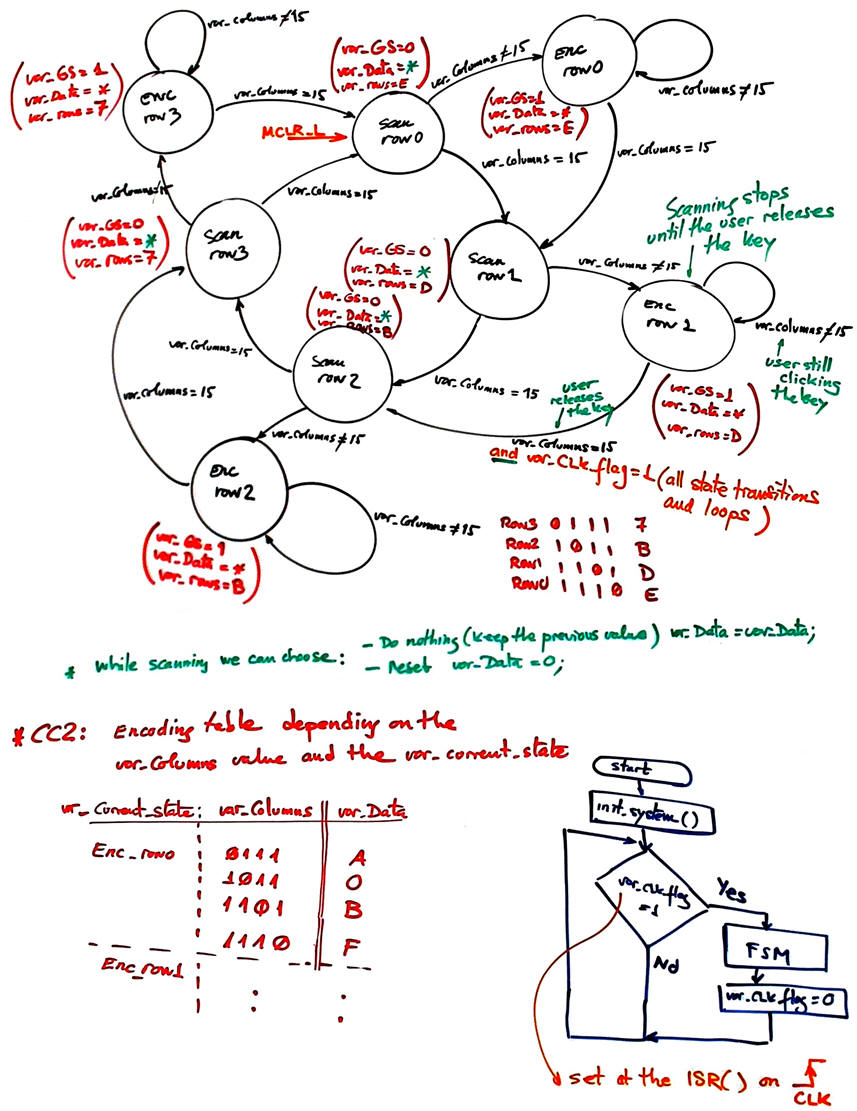 var_columns≠15
(var_GS=1
var_Data=*
var_rows=7)
enc
row3
var_columns=15
(var_GS=0
var_Data=*
var_rows=E)
MCLR_L
Scan
row0
var_columns≠15
Enc
row0
var_columns≠15
(var_GS=1
var_Data=*
var_rows=E)
var_columns=15
var_columns=15
var_columns≠15
var_columns=15
(var_GS=0
var_Data=*
var_rows=7)
Scan
row3
Scanning stops
until the user releases
the key
(var_GS=0
var_Data=*
var_rows=D)
Scan
row1
var_columns≠15
Enc
row 1
var_columns≠15
user still
clicking
the key
(var_GS=0
var_Data=*
var_rows=B)
Scan
row2
var_columns=15
var_columns=15
var_columns=15
user
releases
the key
(var_GS=1
var_Data=*
var_rows=D)
var_columns≠15
var_columns=15
and var_CLK_flag=1 (all state transitions
and loops)
Enc
row2
var_columns≠15
(var_GS=1
var_Data=*
var_rows=B)
Row3 0 1 1 1 7
Row2 1 0 1 1 B
Row1 1 1 0 1 D
Row0 1 1 1 0 E
* while scanning we can choose: - Do nothing (keep the previous value) var_Data=var_Data;
- Reset var_Data=0;
* CC2: Encoding table depending on the
var_Columns value and the var_current_state
var_Current_state: var_Columns var_Data
Enc_row0 0111 A
1011 0
1101 B
1110 F
Enc_row1 : :
start
init_system()
var_CLK_flag
=1
Yes
No
FSM
var_CLK_flag=0
set at the ISR() on
CLK